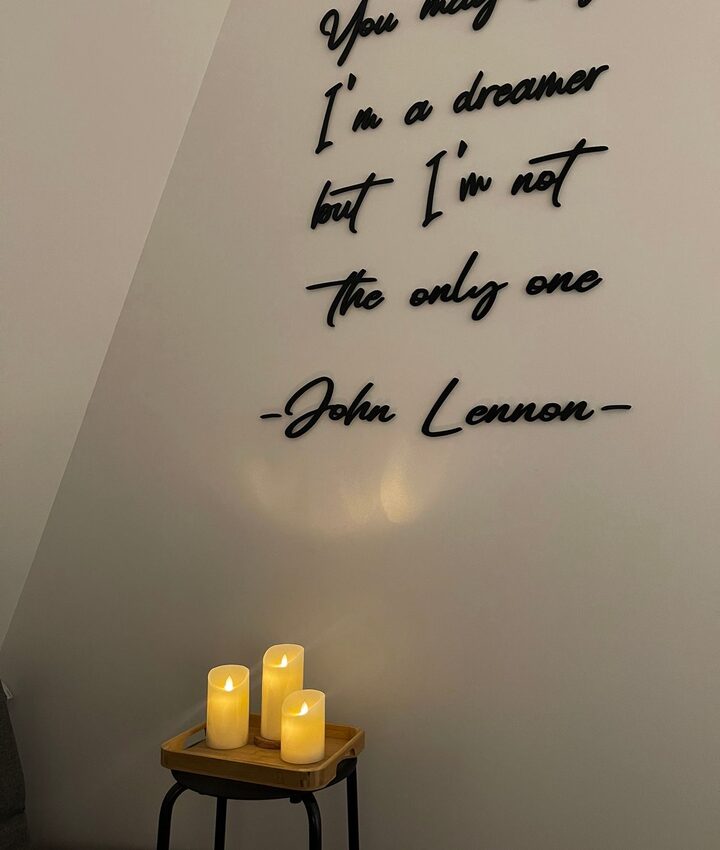 You may
I'm a dreamer
but I'm not
the only one
-John Lennon-